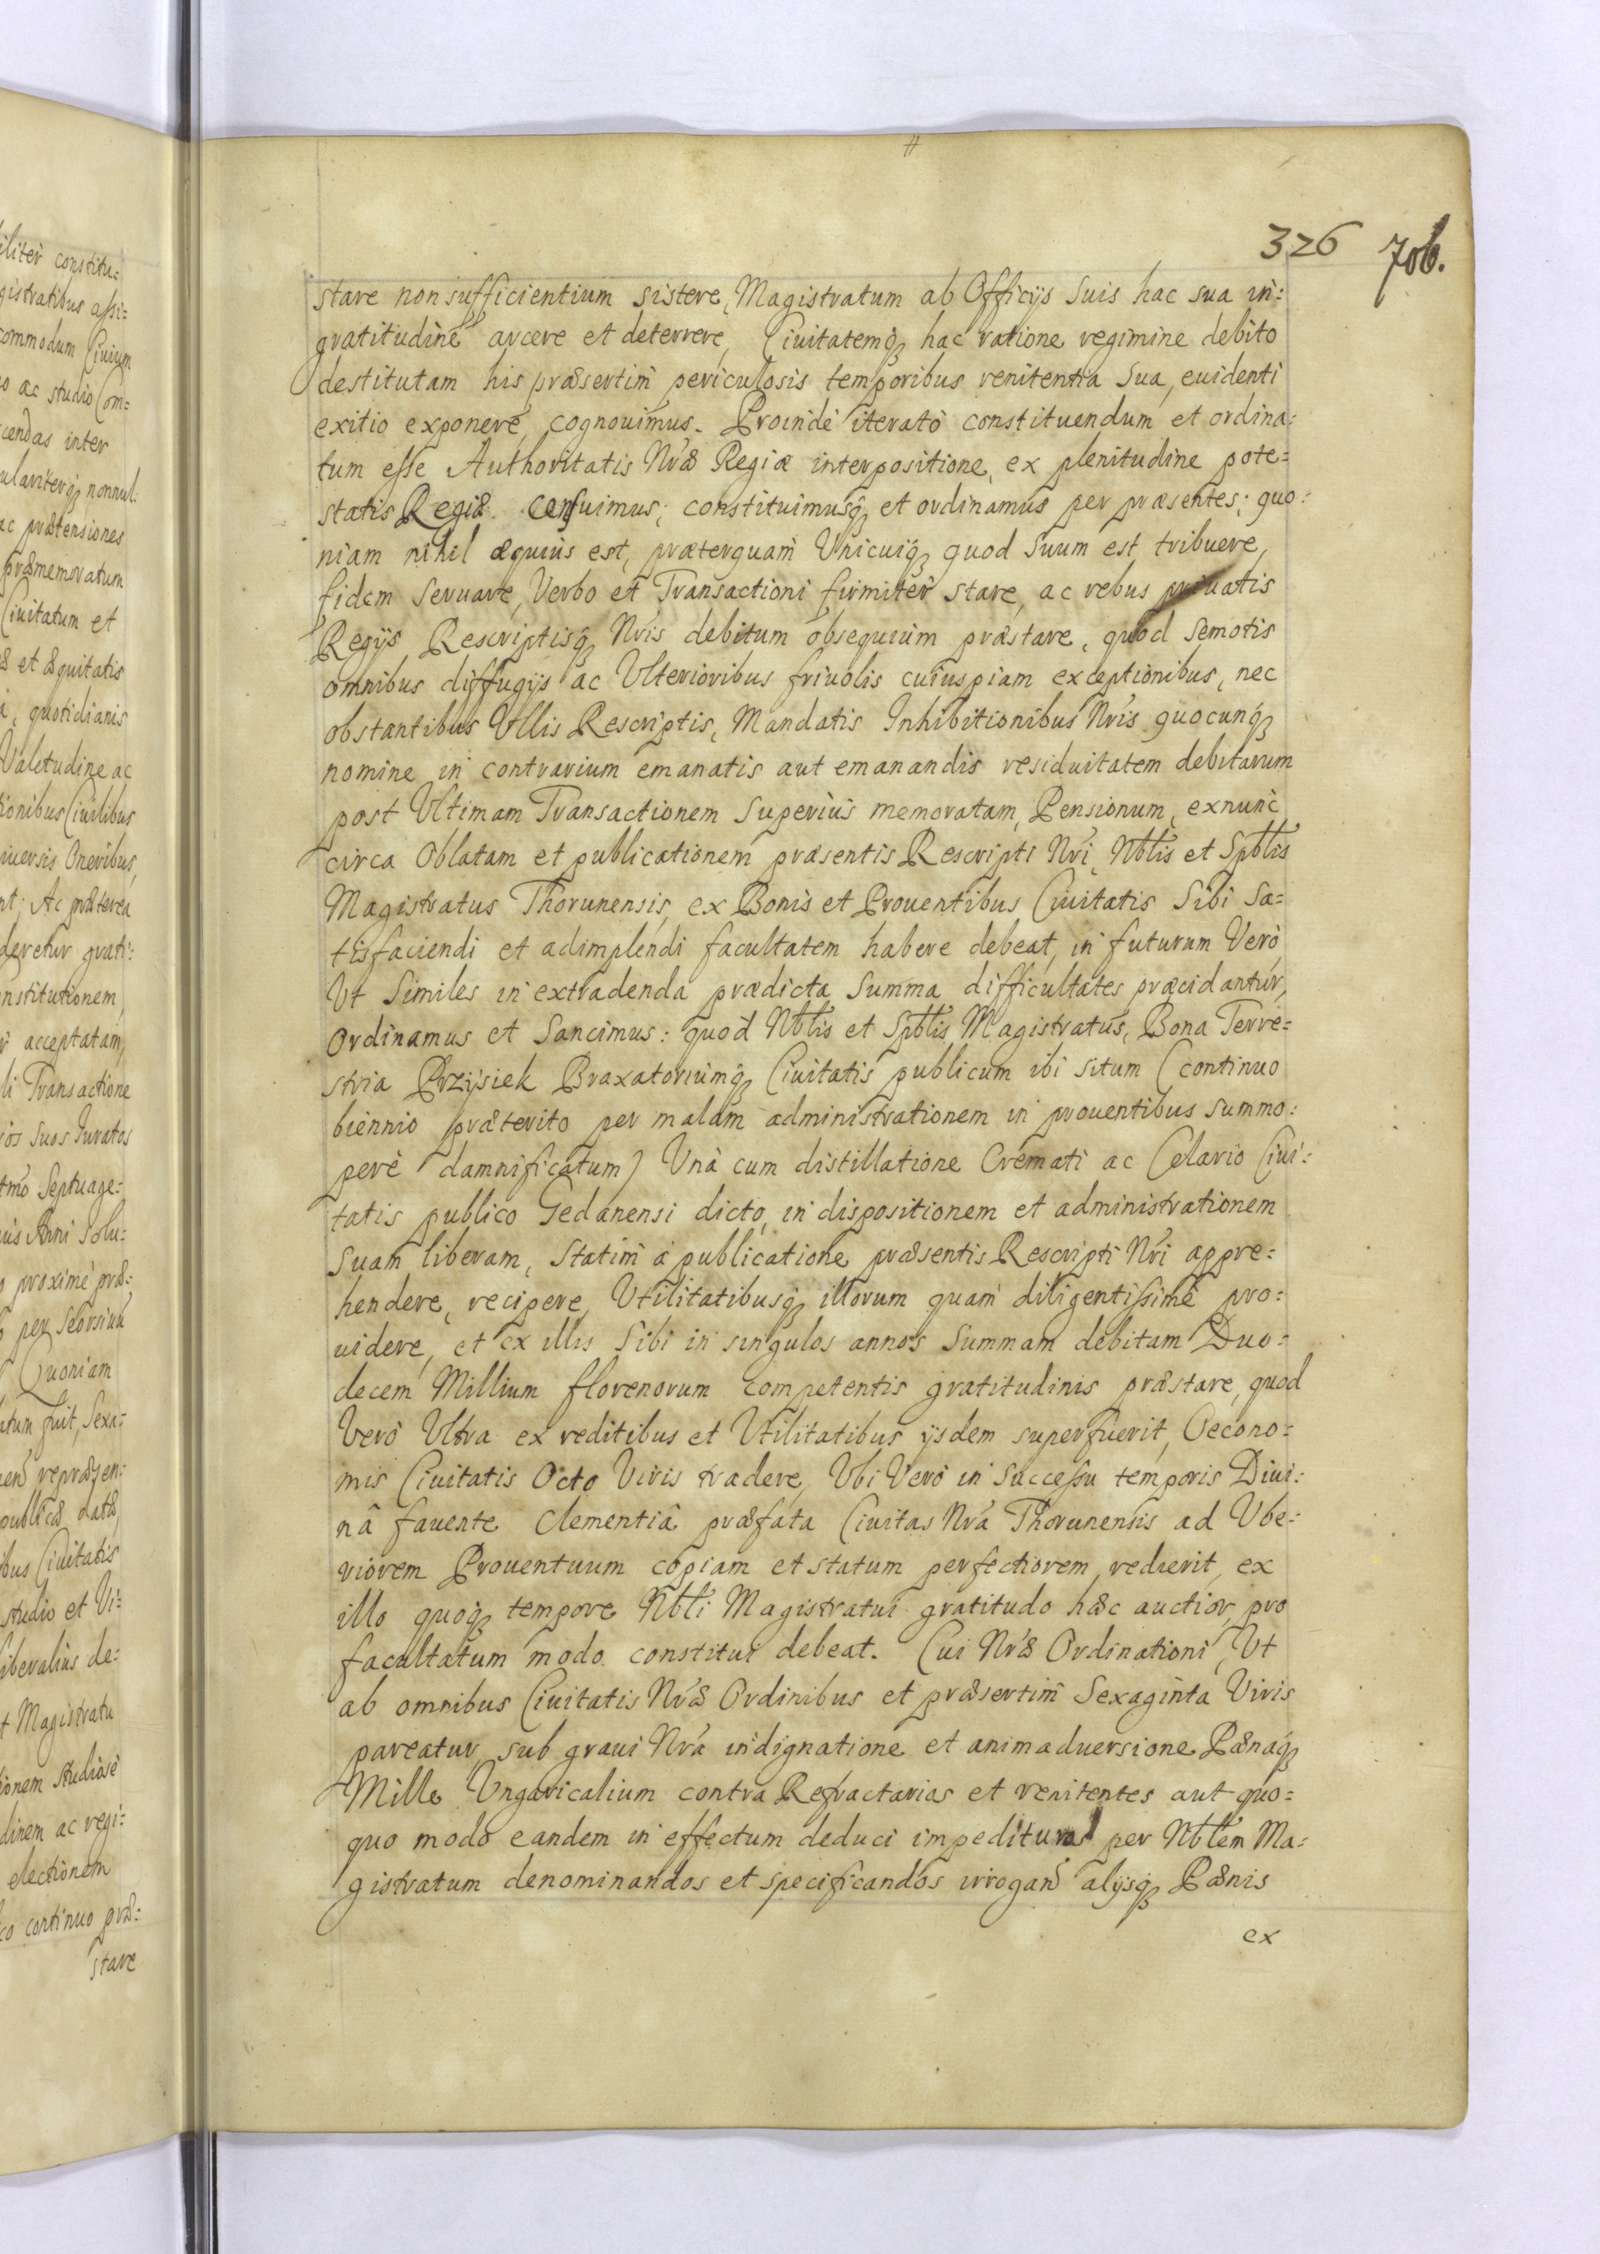 326 706.
stare non sufficientium sistere, Magistratum ab Officijs suis hac sua in:
gratitudine arcere et deterrere, Ciuitatemq́ hac ratione regimine debito
destitutam his præsertim periculosis temporibus renitentia Sua, euidenti
exitio exponere, cognouimus. Proindè iteratò constituendum et ordina:
tum esse Authoritatis Nræ Regiæ interpositione, ex plenitudine pote=
statis Regiæ censuimus; constituimusq́ et ordinamus per præsentes; quo:
niam nihil æquius est, præterquam Vnicuiq́ quod Suum est, tribuere,
fidem Seruare, Verbo et Transactioni firmitèr stare, ac rebus priuatis
Regijs Rescriptisq́ Nris debitum obsequium præstare, quod Semotis
omnibus diffugijs ac Vlterioribus friuolis cuiuspiam exceptionibus, nec
obstantibus Vllis Rescriptis, Mandatis Inhibitionibus Nris quocunq́
nomine in contrarium emanatis aut emanandis residuitatem debitarum
post Vltimam Transactionem Superiùs memoratam, Pensionum, exnunc
circa Oblatam et publicationem præsentis Rescripti Nri, Nbtis et Spbtis
Magistratus Thorunensis, ex Bonis et Prouentibus Ciuitatis Sibi Sa=
tisfaciendi et adimplendi facultatem habere debeat, in futurum Verò,
Vt Similes in extradenda prædicta Summa difficultates præcidantur,
Ordinamus et Sancimus: quod Nbtis et Spbtis Magistratus, Bona Terre=
stria Przysiek Braxatoriumq́ Ciuitatis publicum ibi situm (continuo
biennio præterito per malam administrationem in prouentibus summo:
perè damnificatum) Vnà cum distillatione Cremati ac Celario Ciui:
tatis publico Gedanensi dicto, in dispositionem et administrationem
Suam liberam, Statim à publicatione præsentis Rescripti Nri appre=
hendere, recipere, Vtilitatibusq́ illorum quam diligentissimè pro:
uidere, et ex illis Sibi in singulos annos Summam debitam Duo=
decem Millium florenorum competentis gratitudinis præstare, quod
Verò Vltra ex reditibus et Vtilitatibus ijsdem superfuerit, Oecono=
mis Ciuitatis Octo Viris tradere, Vbi Verò in Successu temporis Diui:
nâ fauente Clementiâ præfata Ciuitas Nra Thorunensis ad Vbe=
riorem Prouentuum copiam et statum perfectiorem redierit, ex
illo quoq́ tempore Nbti Magistratui gratitudo hæc auctior, pro
facultatum modo constitui debeat. Cui Nræ Ordinationi, Vt
ab omnibus Ciuitatis Nræ Ordinibus et præsertim Sexaginta Viris
pareatur, sub graui Nra indignatione et animaduersione Pænaq́
Mille Vngaricalium contra Refractarios et renitentes aut quo=
quo modo eandem in effectum deduci impedituros per Nbtem Ma:
gistratum denominandos et specificandos irrogan alijsq́ Pænis
ex